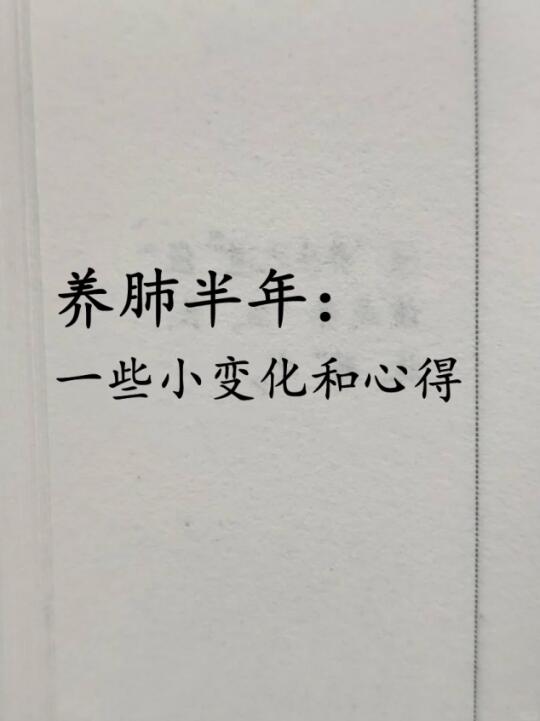 养肺半年：
一些小变化和心得